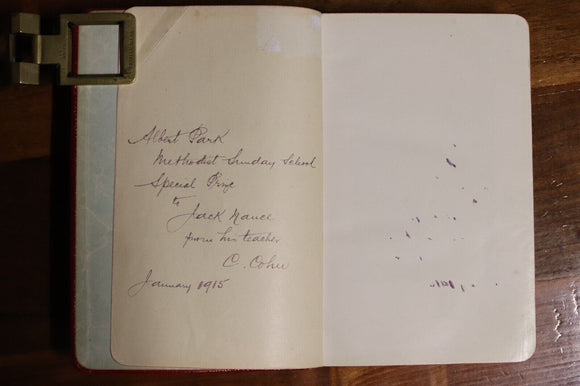 Albert Park
Methodist Sunday School
Special Prize
to
Jack Nance
from his teacher
C.
January 1915